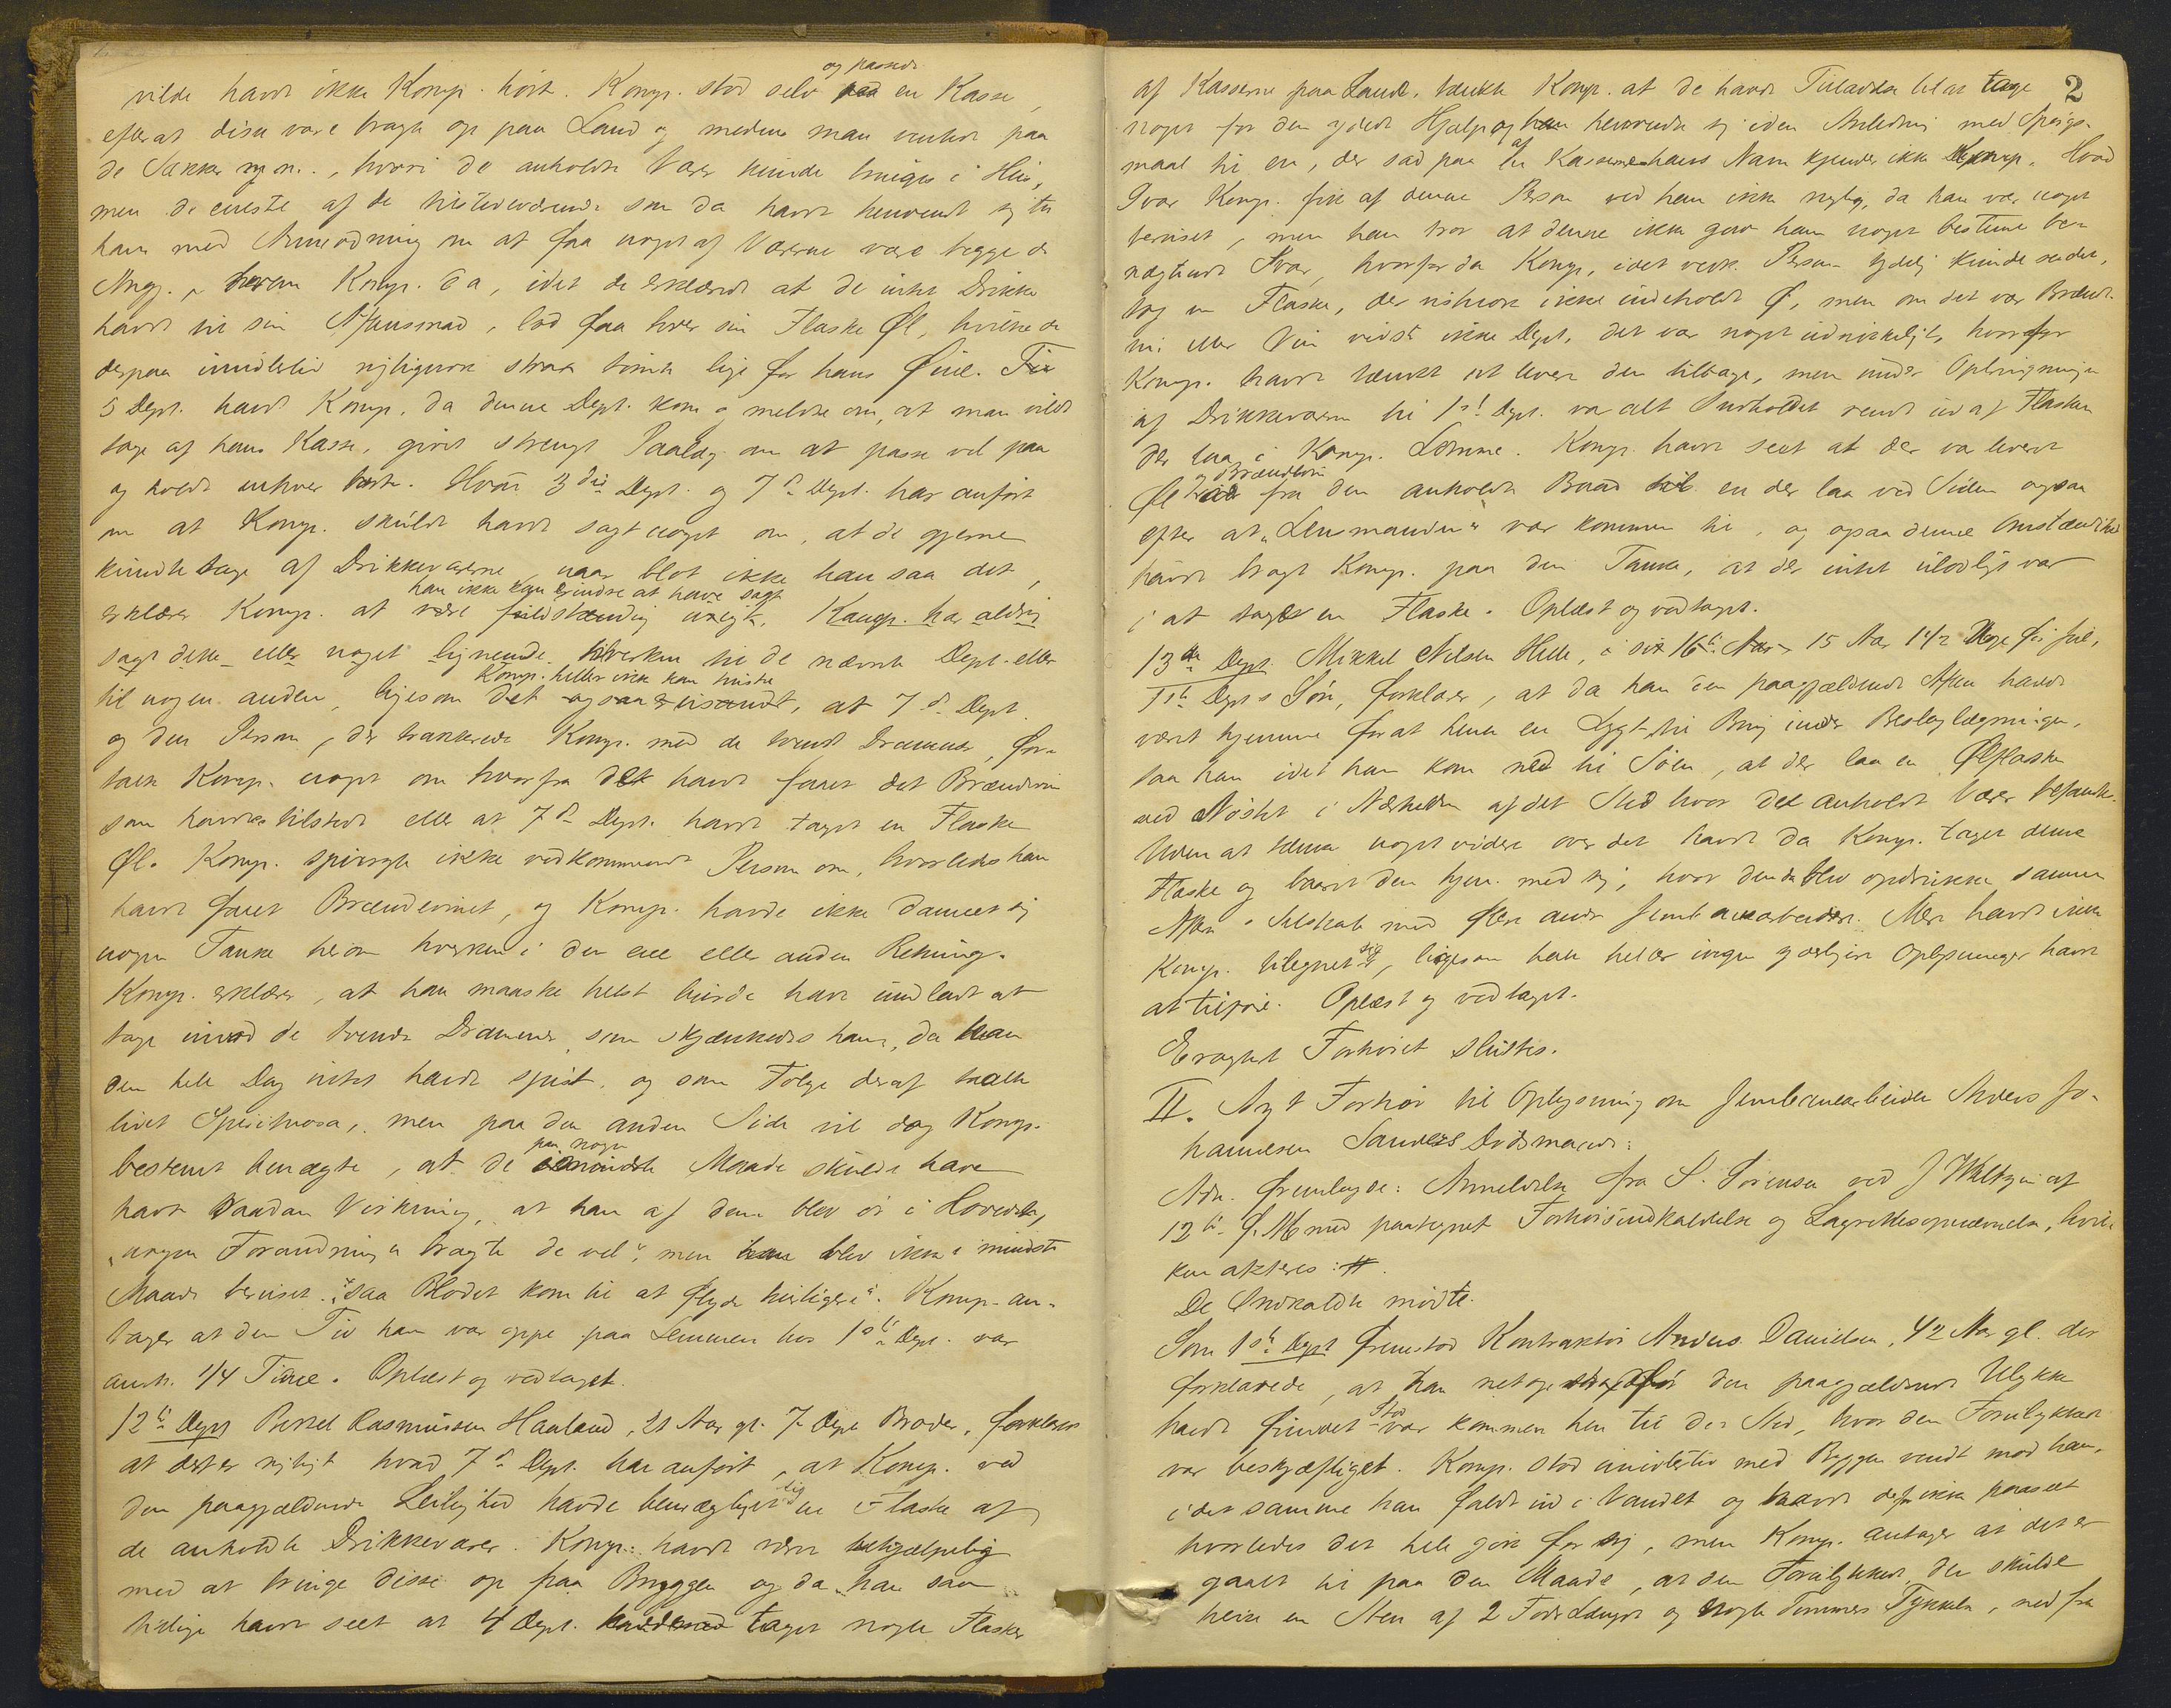 vilde havde ikke Komp. hørt. Komp. stod selv og passede en Kasse,
efterat disse vare bragte op paa Land og medens man ventede paa
de Sækker m. m., hvori de anholdte Varer kunde bringes i Hus,
men de eneste af de tilstedeværende som da havde henvendt sig til
ham med Anmodning om at faa noget af Varerne vare begge de
Komp. da, idet de erklærede at de intet Drikke
havde til sin Aftensmad, lod faa hver sin Flaske Øl, hvilke de
derpaa imidlertid rigtignok strax tømte lige for hans Øine. Til
5 Dept. havde Komp. da denne Dept. kom og meldte om, at man vilde
tage af hans Kasse, givet strengt Paalæg om at passe vel paa
og holde enhver borte. Hvad 3die Dept. og 7de Dept. har anført
om at Komp. skulde havde sagt noget om, at de gjerne
kunde tage af Drikkevarerne, naar blot ikke han saa det,
erklærer Komp. at han ikke kan erindre at have sagt være fuldstændig urigtig. Komp. har aldrig
sagt dette eller noget lignende hverken til de nævnte Dept. eller
til nogen anden, ligesom Komp. heller ikke kan huske det ogsaa er usandt, at 7de Dept.
og den Person, der trakterede Komp. med de tvende Drammer, for-
talte Komp. noget om hvorfra de havde faaet det Brændevin
som havdes tilstede eller at 7de Dept. havde taget en Flaske
Øl. Komp. spurgte ikke vedkommende Person om, hvorledes han
havde faaet Brændevinet, og Komp. havde ikke dannet sig
nogen Tanke herom hverken i den ene eller anden Retning.
Komp. erklærer, at han maaske helst burde have undladt at
tage imod de tvende Drammer, som skjænkedes ham, da han
den hele Dag intet havde spist, og som Følge deraf taalte
lidet Spirituosa, men paa den anden Side vil dog Komp.
bestemt benægte, at de paa nogen Maade skulde have
havt saadan Virkning, at han af dem blev ør i Hovedet,
"nogen Forandring bragte de vel", men han blev ikke i mindste
Maade beruset. "saa Blodet kom til at flyde hurtigere". Komp. an-
tager at den Tid han var oppe paa Lemmen hos 1ste Dept. var
omtr. 1/4 Time. Oplæst og vedtaget.
12te Dept Rasmussen Hauland, 21 Aar gl. 7de Depts Broder, forklarer
at det er rigtigt hvad 7de Dept. har anført, at Komp. ved
den paagjældende Leilighed havde bemægtiget sig en Flaske af
de anholdte Drikkevarer. Komp. havde været behjælpelig
med at bringe disse op paa Bryggen og da han saa
tidlige havde seet at 4 Dept. taget nogle Flasker
2
af Kasserne paa Land, tænkte Komp. at de havde Tilladelse til at tage
noget for den ydede Hjælp og han henvendte sig i den Anledning med Spørgs-
maal til en, der sad paa en af Kasserne hans Navn kjender ikke Komp. Hvad
Svar Komp. fik af denne Person ved han ikke rigtig, da han var noget
beruset, men han tror at denne ikke gav ham noget bestemt be-
nægtende Svar, hvorfor da Komp., idet vedk. Person tydelig kunde se det,
tog en Flaske, der vistnok ikke indeholdt Øl, men om det var Brænde-
vin eller Vin vidste ikke Dept., det var noget udrikkeligt, hvorfor
Komp. havde tænkt at levere den tilbage, men under Opbringningen
af Drikkevarerne til 1ste Dept. var alt Indholdet rendt ud af Flasken
der laa i Komp. Lomme. Komp. havde seet at der var leveret
Øl og Brændevin fra den anholdte Baad til en der laa ved Siden ogsaa
efter at "Lensmanden" var kommen til, og ogsaa denne Omstændighed
havde bragt Komp. paa den Tanke, at der intet ulovligt var
i at tage en Flaske. Oplæst og vedtaget.
13de Dept. Mikkel Nilsen Helle, i sit 16de Aar 15 Aar 1 1/2 Uge før Jul,
1ste Depts Søn, forklarer, at da han den paagjældende Aften havde
været hjemme for at hente en Lygt til Brug under Beslaglægningen,
saa han idet han kom ned til Søen, at der laa en Ølflaske
ved Nøstet i Nærheden af det Sted hvor de anholdte Varer befandtes.
Uden at tænke noget videre over det havde da Komp. taget denne
Flaske og baaret den hjem med sig, hvor den da blev opdrukken samme
Aften i Selskab med flere andre Jernbanearbeidere. Mere havde ikke
Komp. tilegnet sig, ligesom han heller ingen yderligere Oplysninger havde
at tilføie. Oplæst og vedtaget.
Eragtet Forhøret sluttes.
II. Argt Forhør til Oplysning om Jernbanearbeider Anders Jo-
hannesen Sandnes Dødsmaade:
Adm. fremlagde: Anmeldelse fra S. Sørensen ved J af
12te f. M. med paategnet Forhørsindkaldelse og Lagrettesopnævnelse, hvil-
ken akteres: #.
De Indkaldte mødte.
Som 1ste Dept fremstod Kontraktør Anders Danielsen, 42 Aar gl. der
forklarede, at han netop strax før den paagjældende Ulykke
havde fundet Sted var kommen hen til det Sted, hvor den Forulykkede
var beskjæftiget. Komp. stod imidlertid med Ryggen vendt mod ham,
i det samme han faldt ud i Vandet og havde derfor ikke paaseet
hvorledes det hele gik for sig, men Komp. antager at det er
gaaet til paa den Maade, at den Forulykkede, der skulde
heise en Sten af 2 Fods Længde og nogle Tommers Tykkelse, ned fra